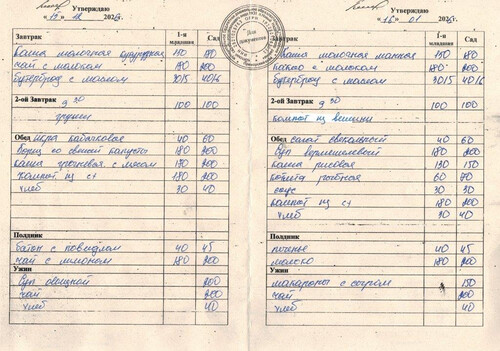 Утверждаю
Завтрак 1-я младшая Сад
Каша молочная кукурузная 150 180
Чай с молоком 180 200
бутерброд с маслом 30/5 40/6
2-ой Завтрак 9 30 100 100
груши
Обед икра кабачковая 40 60
Борщ со свежей капусты 180 200
каша гречневая с мясом 170 200
компот из с\ф 180 200
хлеб 30 40
Полдник
батон с повидлом 40 45
чай с лимоном 180 200
Ужин
Суп овощной 200
чай 200
хлеб 40
Для документов
Утверждаю
Завтрак 1-я младшая Сад
Каша молочная манная 150 180
какао с молоком 180 200
бутерброд с маслом 30/5 40/6
2-ой Завтрак 9 30 100 100
компот из вишни
Обед салат свекольный 40 60
Суп вермишелевый 180 200
каша рисовая 130 150
котлета рыбная 60 70
соус 30 30
компот из с\ф 180 200
хлеб 30 40
Полдник
печенье 40 45
молоко 180 200
Ужин
макароны с сыром 150
чай 200
хлеб 40